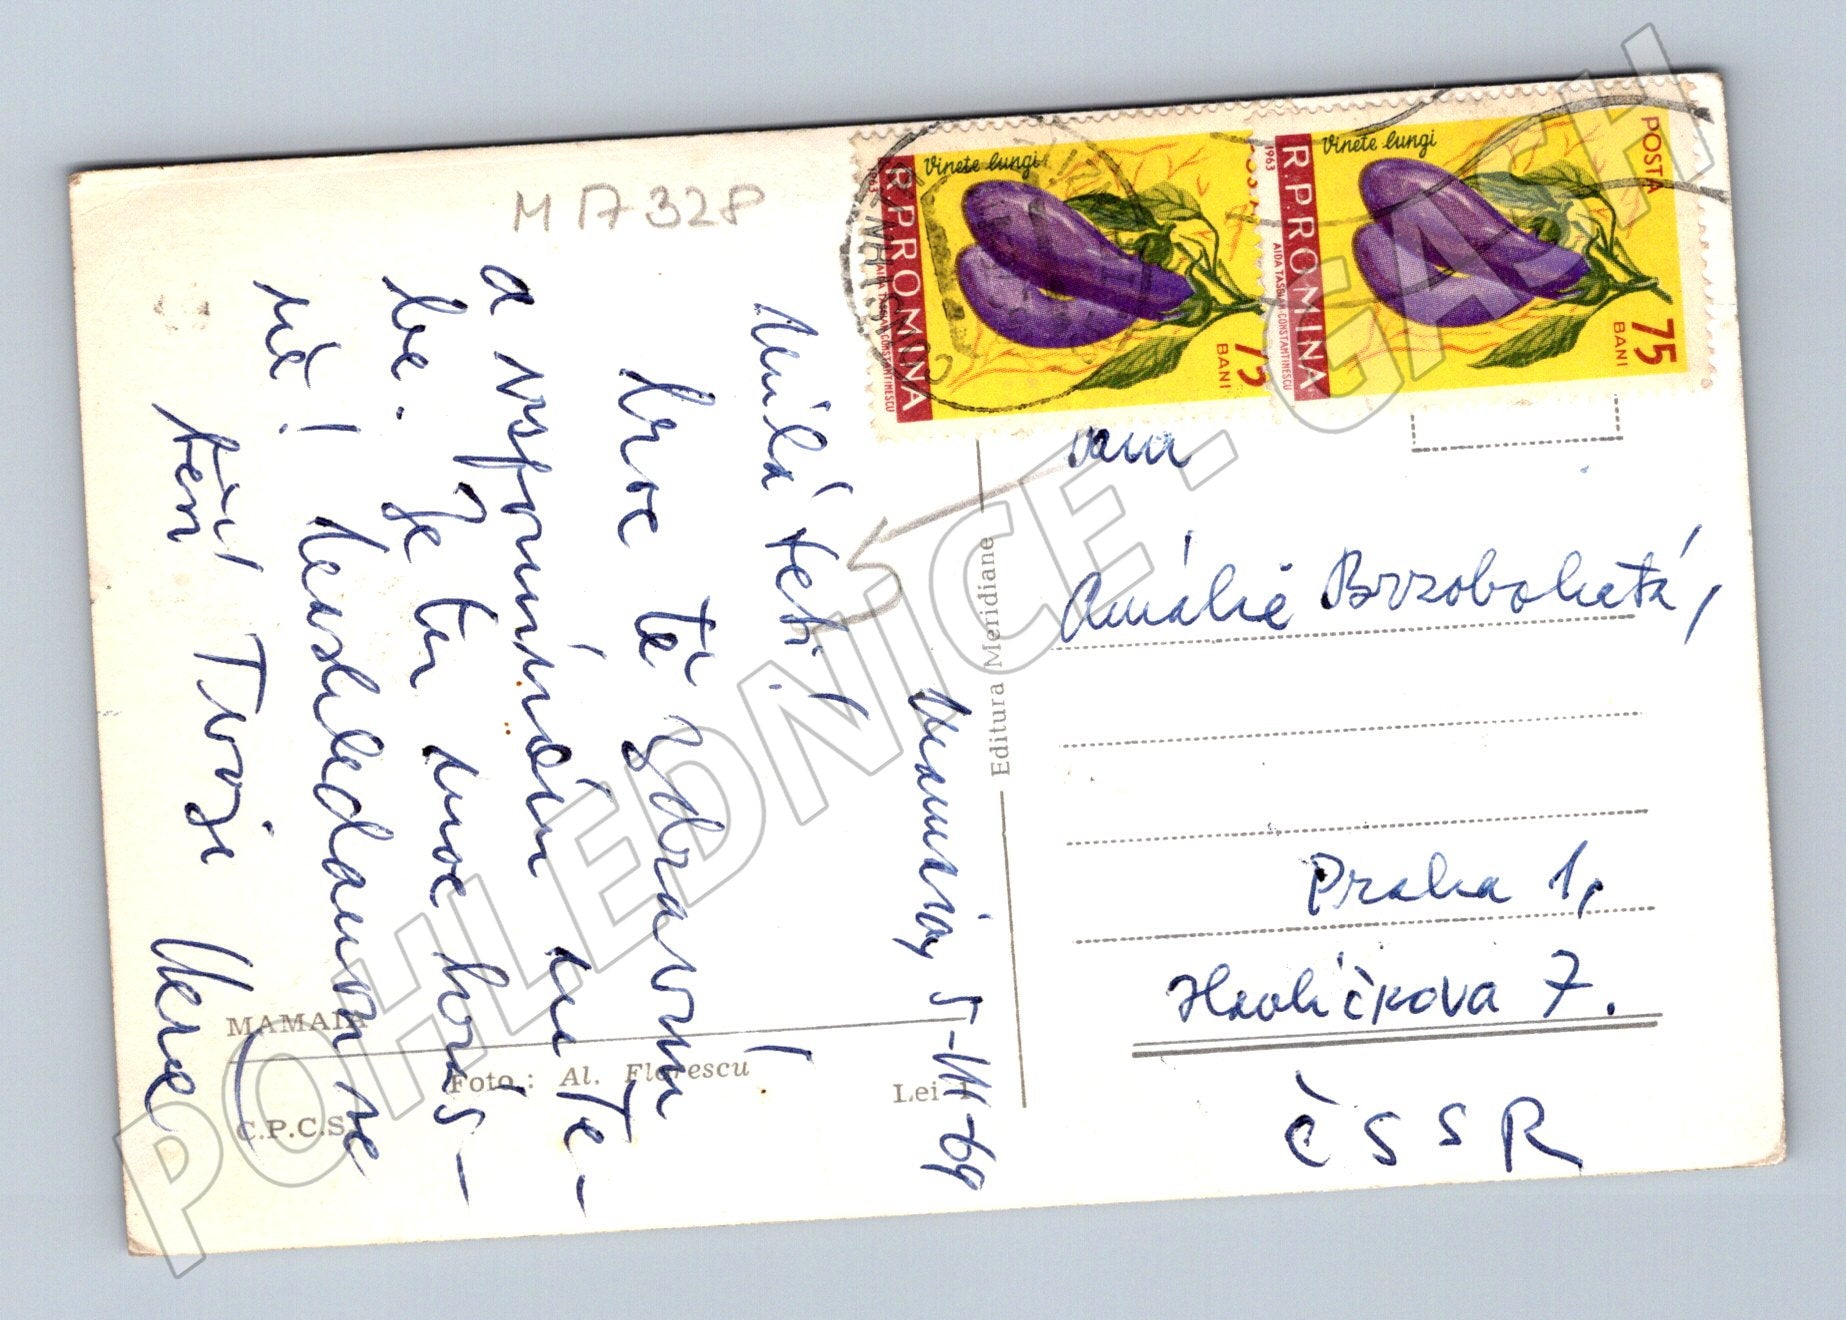 M17328
Mamaia, 5-VIII-69
Milá teti!
Moc tě zdravím
a vzpomínám na Te-
be. Je tu moc hez-
ně!
na
těší Tvoje Věra
MAMAIA
Foto: Al. Florescu
C.P.C.S.
Lei 1
Editura Meridiane
Vinete lungi
R.P.ROMINA
1963
AIDA TASGIAN-CONSTANTINESCU
75
BANI
Vinete lungi
R.P.ROMINA
1963
AIDA TASGIAN-CONSTANTINESCU
POSTA
75
BANI
Amálie Brzobohatá,
Praha 1,
Havlíčkova 7.
ČSSR
POHLEDNICE - GASH